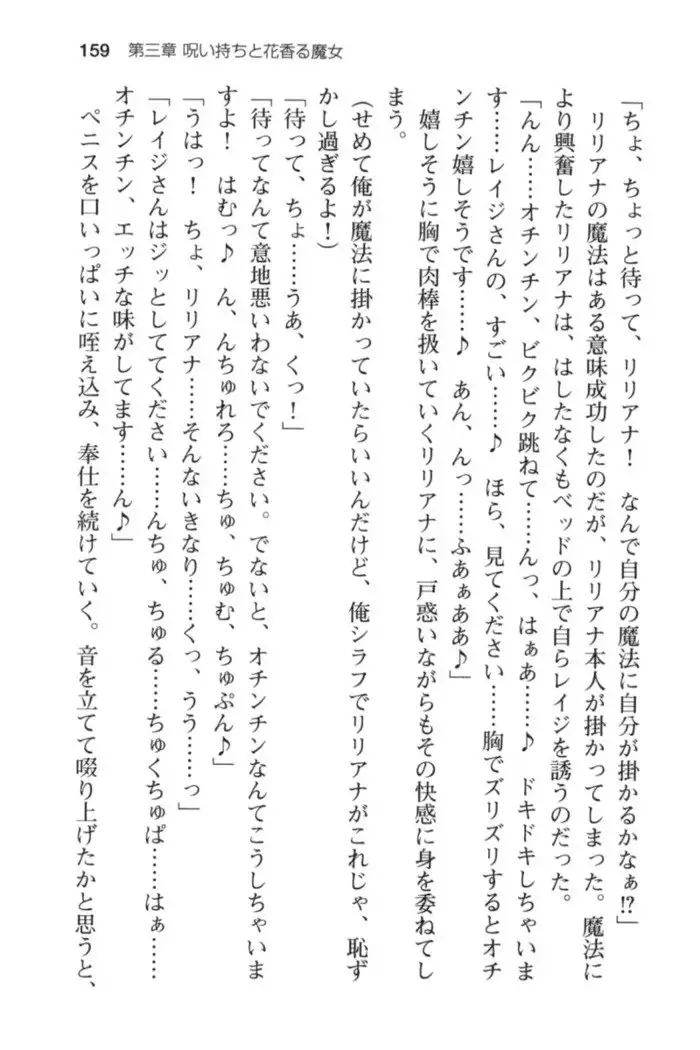 159 第三章 呪い持ちと花香る魔女
「ちょ、ちょっと待って、リリアナ！　なんで自分の魔法に自分が掛かるかなぁ!?」
　リリアナの魔法はある意味成功したのだが、リリアナ本人が掛かってしまった。魔法に
より興奮したリリアナは、はしたなくもベッドの上で自らレイジを誘うのだった。
「んん……オチンチン、ビクビク跳ねて……んっ、はぁあ……♪　ドキドキしちゃいま
す……レイジさんの、すごい……♪　ほら、見てください……胸でズリズリするとオチ
ンチン嬉しそうです……♪　あん、んっ……ふあぁああ♪」
　嬉しそうに胸で肉棒を扱いていくリリアナに、戸惑いながらもその快感に身を委ねてし
まう。
（せめて俺が魔法に掛かっていたらいいんだけど、俺シラフでリリアナがこれじゃ、恥ず
かし過ぎるよ！）
「待って、ちょ……うあ、くっ！」
「待ってなんて意地悪いわないでください。でないと、オチンチンなんてこうしちゃいま
すよ！　はむっ♪　ん、んちゅれろ……ちゅ、ちゅむ、ちゅぷん♪」
「うはっ！　ちょ、リリアナ……そんないきなり……くっ、うう……っ」
「レイジさんはジッとしててください……んちゅ、ちゅる……ちゅくちゅぱ……はぁ……
オチンチン、エッチな味がしてます……ん♪」
　ペニスを口いっぱいに咥え込み、奉仕を続けていく。音を立てて啜り上げたかと思うと、